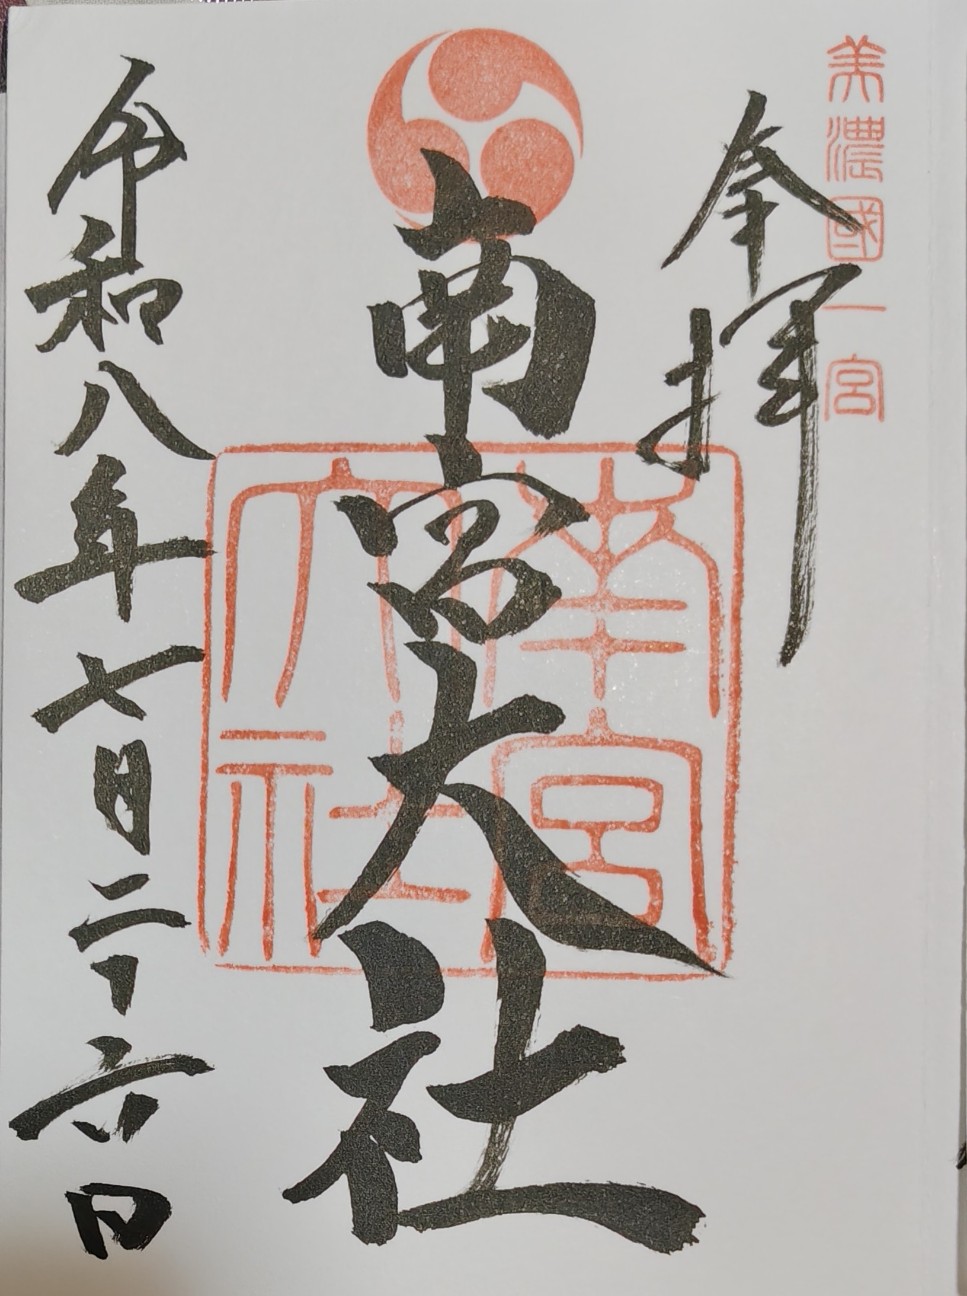 美濃國一宮
奉拝
南宮大社
南宮大社
令和八年七月二十六日